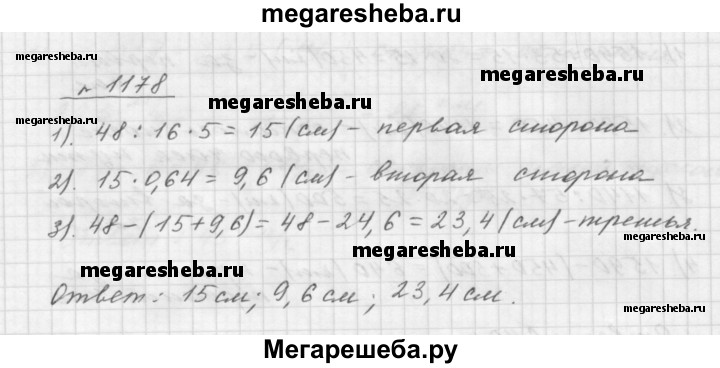 megaresheba.ru
megaresheba.ru
megaresheba.ru
№ 1178
megaresheba.ru
1). 48 : 16 · 5 = 15 (см) - первая сторона
megaresheba.ru
2). 15 · 0,64 = 9,6 (см) - вторая сторона
3). 48 - (15 + 9,6) = 48 - 24,6 = 23,4 (см) - третья.
megaresheba.ru
megaresheba.ru
megaresheba.ru
Ответ: 15 см; 9,6 см; 23,4 см.
Мегарешеба.ру